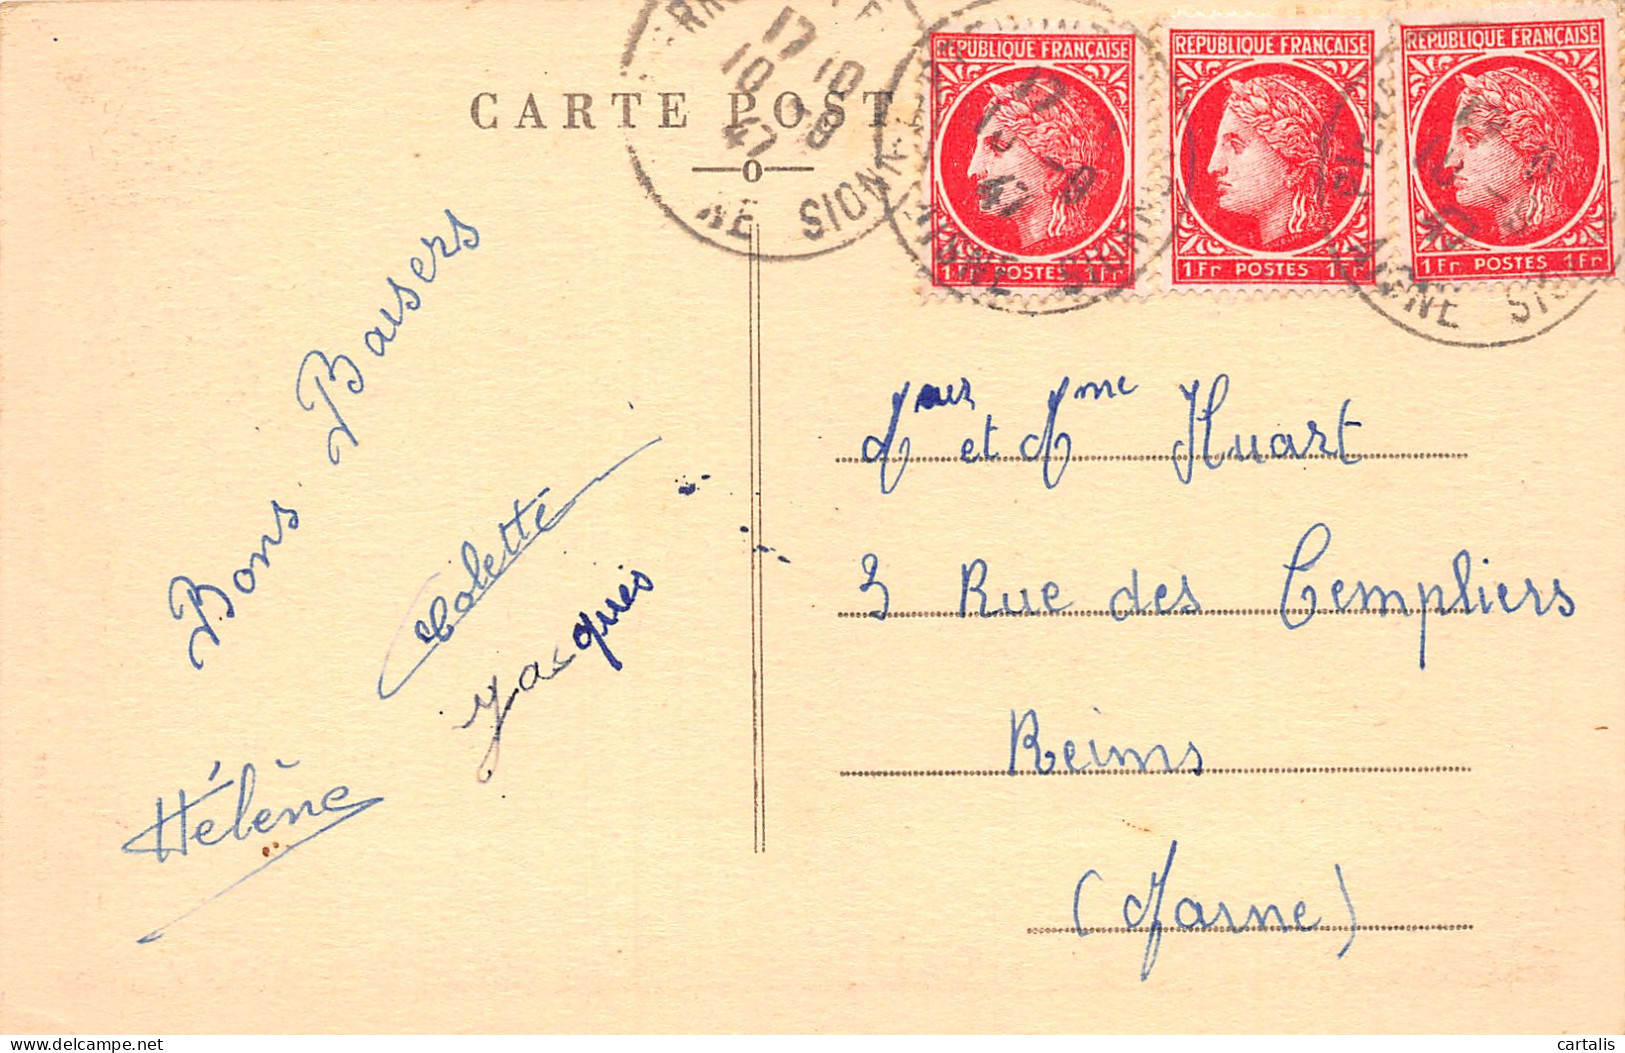 CARTE POST
17 10
10 -8
47
SIONNE
RÉPUBLIQUE FRANÇAISE
1Fr POSTES 1Fr
RÉPUBLIQUE FRANÇAISE
1Fr POSTES 1Fr
RÉPUBLIQUE FRANÇAISE
1Fr POSTES 1Fr
Bons Baisers
Colette
Jacques
Hélène
et Mme Huart
3 Rue des Templiers
Reims
(Marne)
delcampe.net
cartalis